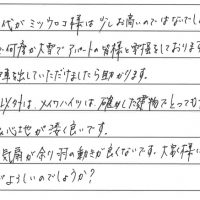 代がミツウロコ様は少しお高いのではないでし
何度か大雪でアパートの皆様と割雪をしております
出していただけましたら助かります。
以外は、メイワハイツは、確かした建物でとっても
心地が凄く良いです。
気扇が余り羽の動きが良くないです。大家様に
がよろしいのでしょうか?